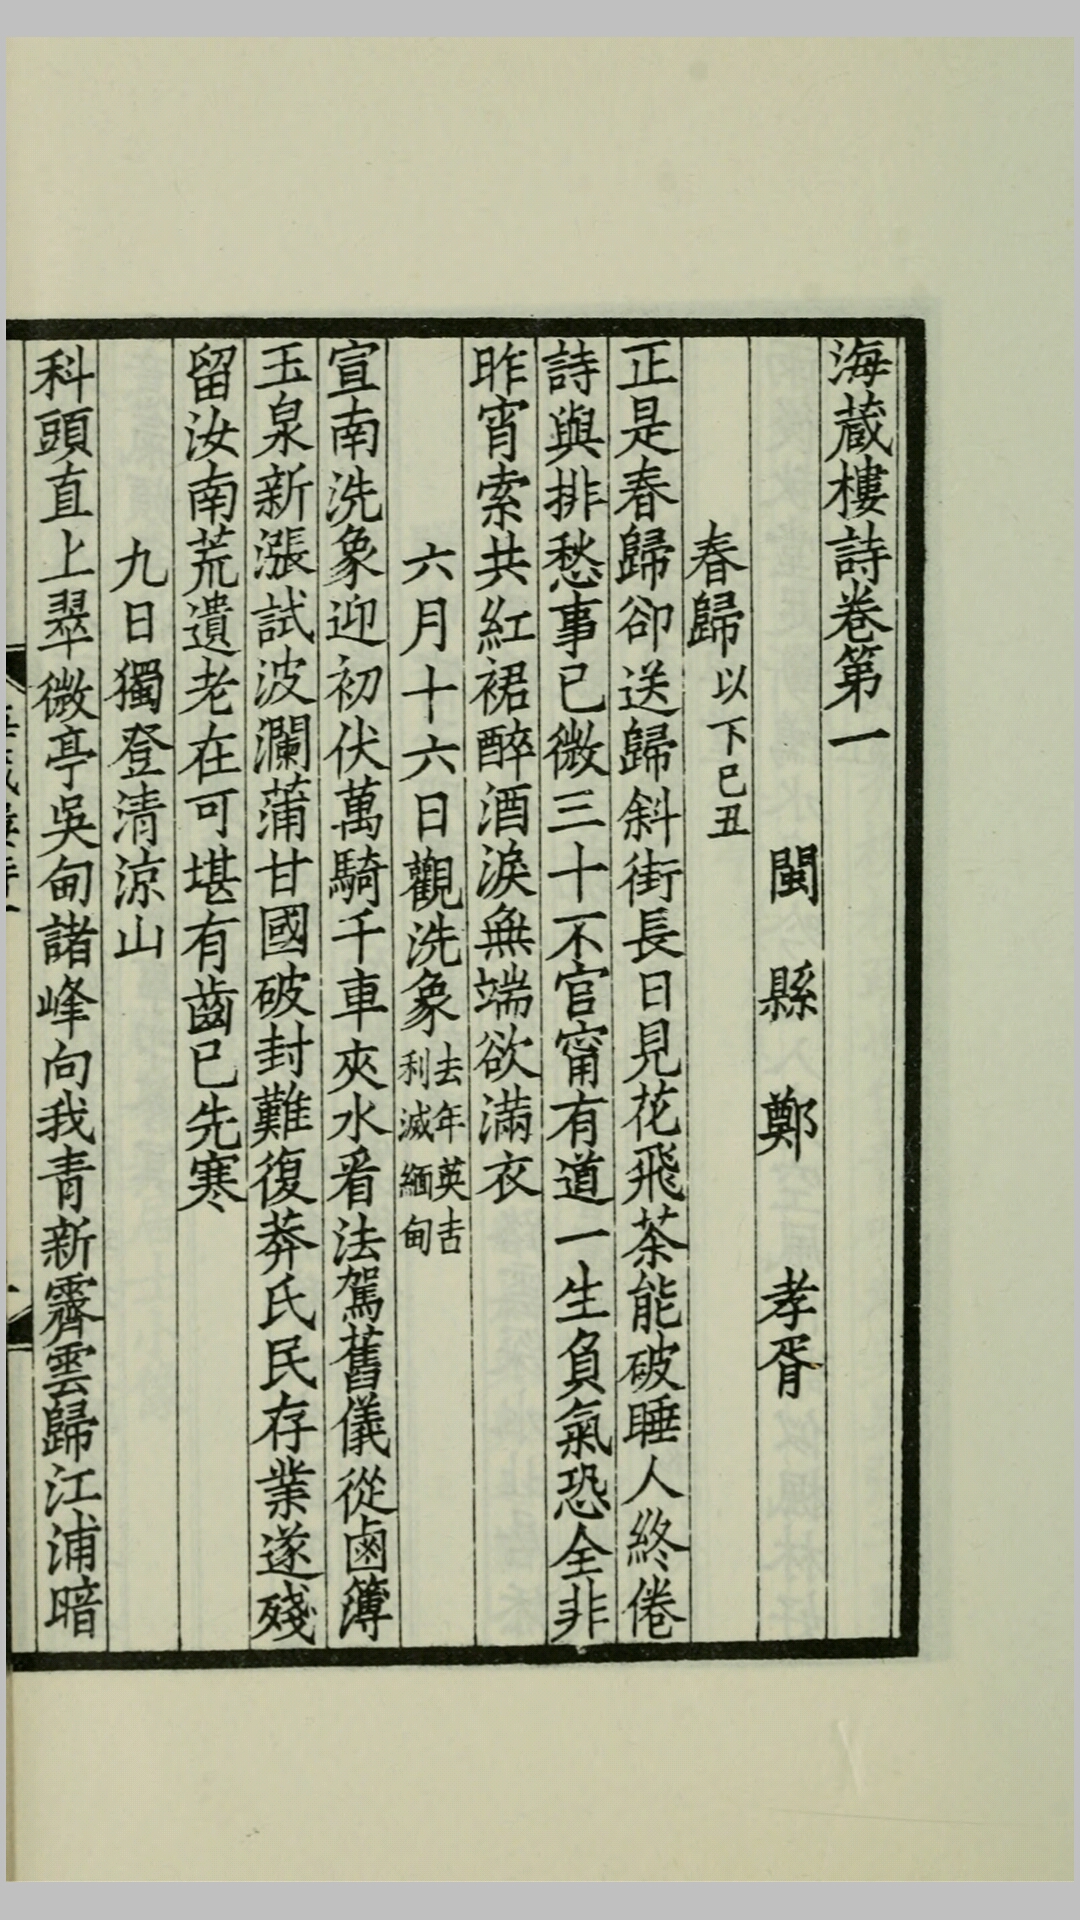 海藏樓詩卷第一
閩縣鄭孝胥
春歸以下己丑
正是春歸卻送歸斜街長日見花飛茶能破睡人終倦
詩與排愁事已微三十不官甯有道一生負氣恐全非
昨宵索共紅裙醉酒淚無端欲滿衣
六月十六日觀洗象去年英吉利滅緬甸
宣南洗象迎初伏萬騎千車夾水看法駕舊儀從鹵簿
玉泉新漲試波瀾蒲甘國破封難復莽氏民存業遂殘
留汝南荒遺老在可堪有齒已先寒
九日獨登清涼山
科頭直上翠微亭吳甸諸峰向我青新霽雲歸江浦暗